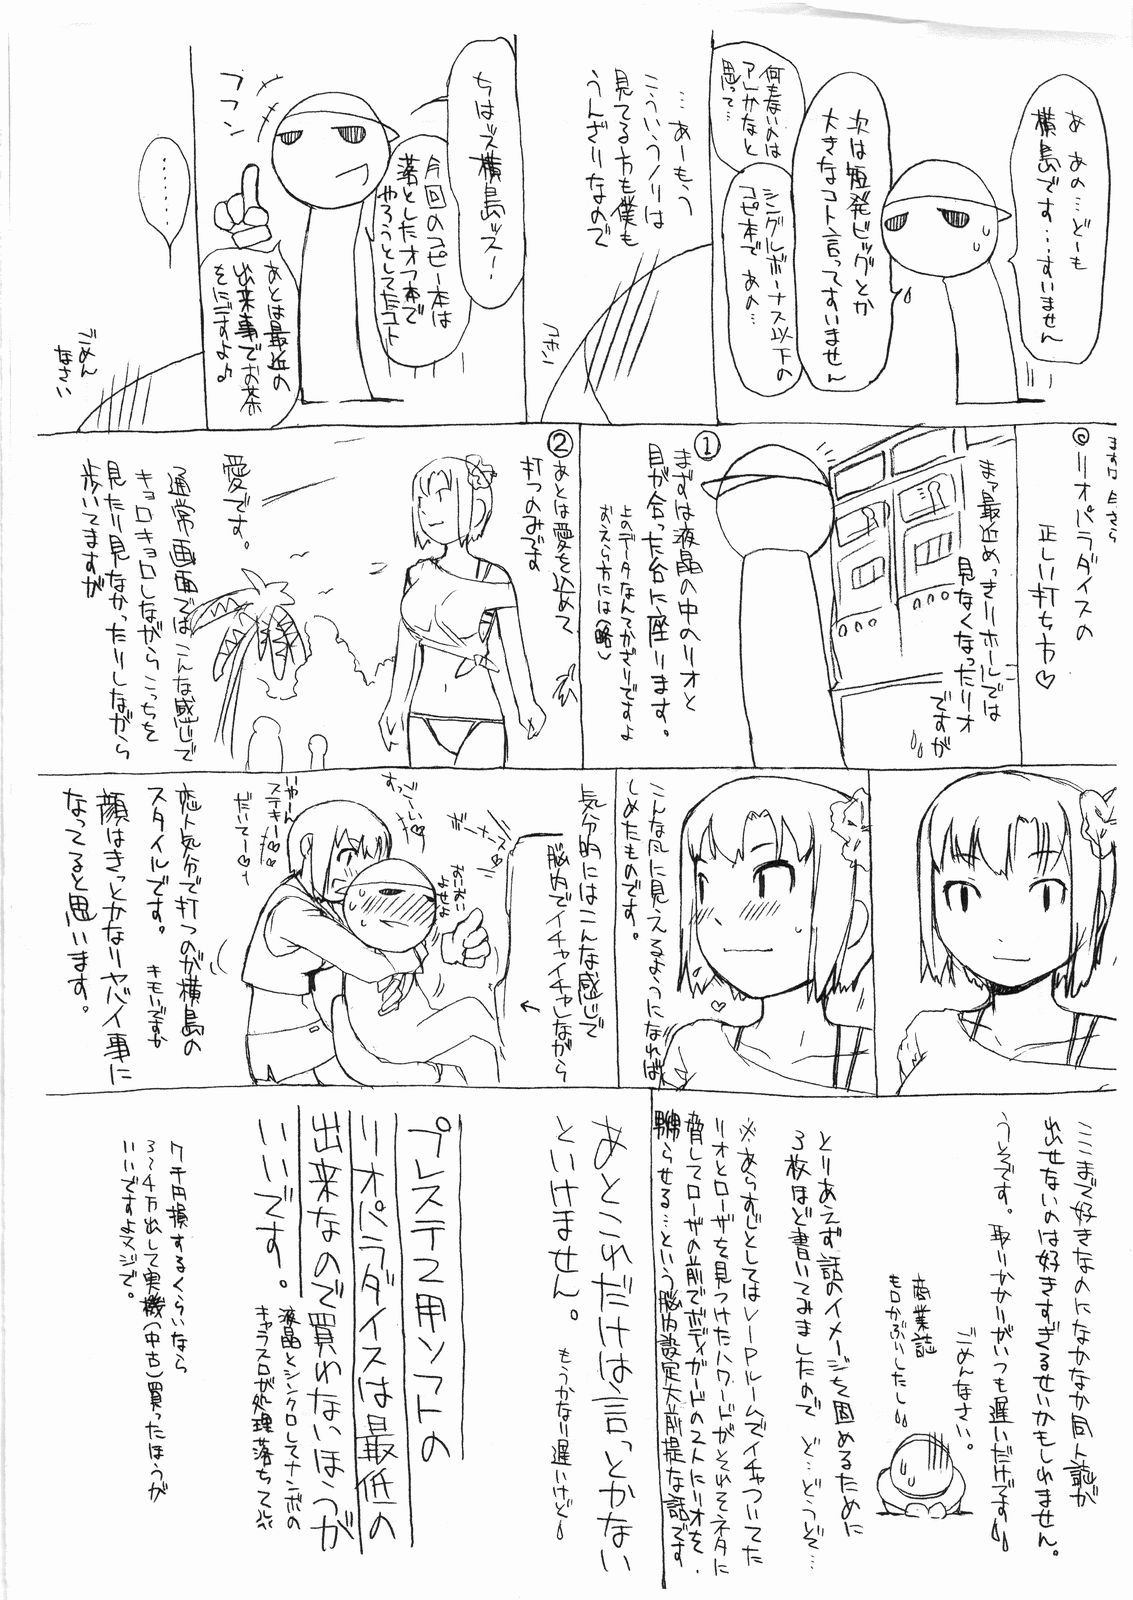 あ あの…どーも
横島です…すいません
次は短発ビッグとか
大きなコト言ってすいません
何もないのは
アレかなと
思って…
シングルボーナス以下の
コピ本で あの…
…あーもう
こういうノリは
見てる方も僕も
うんざりなので
コホン
ちはッス横島ッスー
今回のコピー本は
落としたオフ本で
やろうとしてたコト
あとは最近の
出来事でお茶
をにごすよ♪
フフン
………
ごめん
なさい
まずは今さら
◎リオパラダイスの
正しい打ち方♡
まァ最近めっきりホールでは
見なくなったリオ
ですが
①
まずは液晶の中のリオと
目が合った台に座ります。
上のデータなんてかざりですよ
おえら方には(略)
②
あとは愛を込めて
打つのみです
愛です。
通常画面ではこんな感じで
キョロキョロしながらこっちを
見たり見なかったりしながら
歩いてますが
こんな風に見えるようになれば
しめたものです。
気分的にはこんな感じで
脳内でイチャイチャしながら
ボーナスゥー
すっごーいー
いやーん
ステキー
だいてー
恋人気分で打つのが横島の
スタイルです。
キモいですか
顔はきっとかなりヤバイ事に
なってると思います。
ここまで好きなのになかなか同人誌が
出せないのは好きすぎるせいかもしれません。
うそです。取りかかりがいつも遅いだけです
ごめんなさい。
商業誌
もロかぶりしたし
とりあえず話のイメージを固めるために
3枚ほど書いてみましたので ど…どうぞ…
※あらすじとしてはVIPルームでイチャついてた
リオとローザを見つけたハワードがそれをネタに
脅してローザの前でボディガードのストにリオを
嬲らせる…という脳内設定大前提な話です
あとこれだけは言っとかない
といけません。
もうかなり遅いけど
プレステ2用ソフトの
リオパラダイスは最低の
出来なので買わないほうが
いいです。
液晶とシンクロしてナンボの
キャラスロが処理落ちって
7千円損するくらいなら
3~4万出して実機(中古)買ったほうが
いいですよマジで。